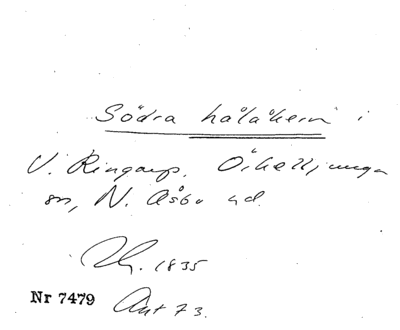 Södra hålåkern i
V. Ringarp, Örkelljunga
sn, N. Åsbo hd.
1835
Nr 7479 Akt 73.